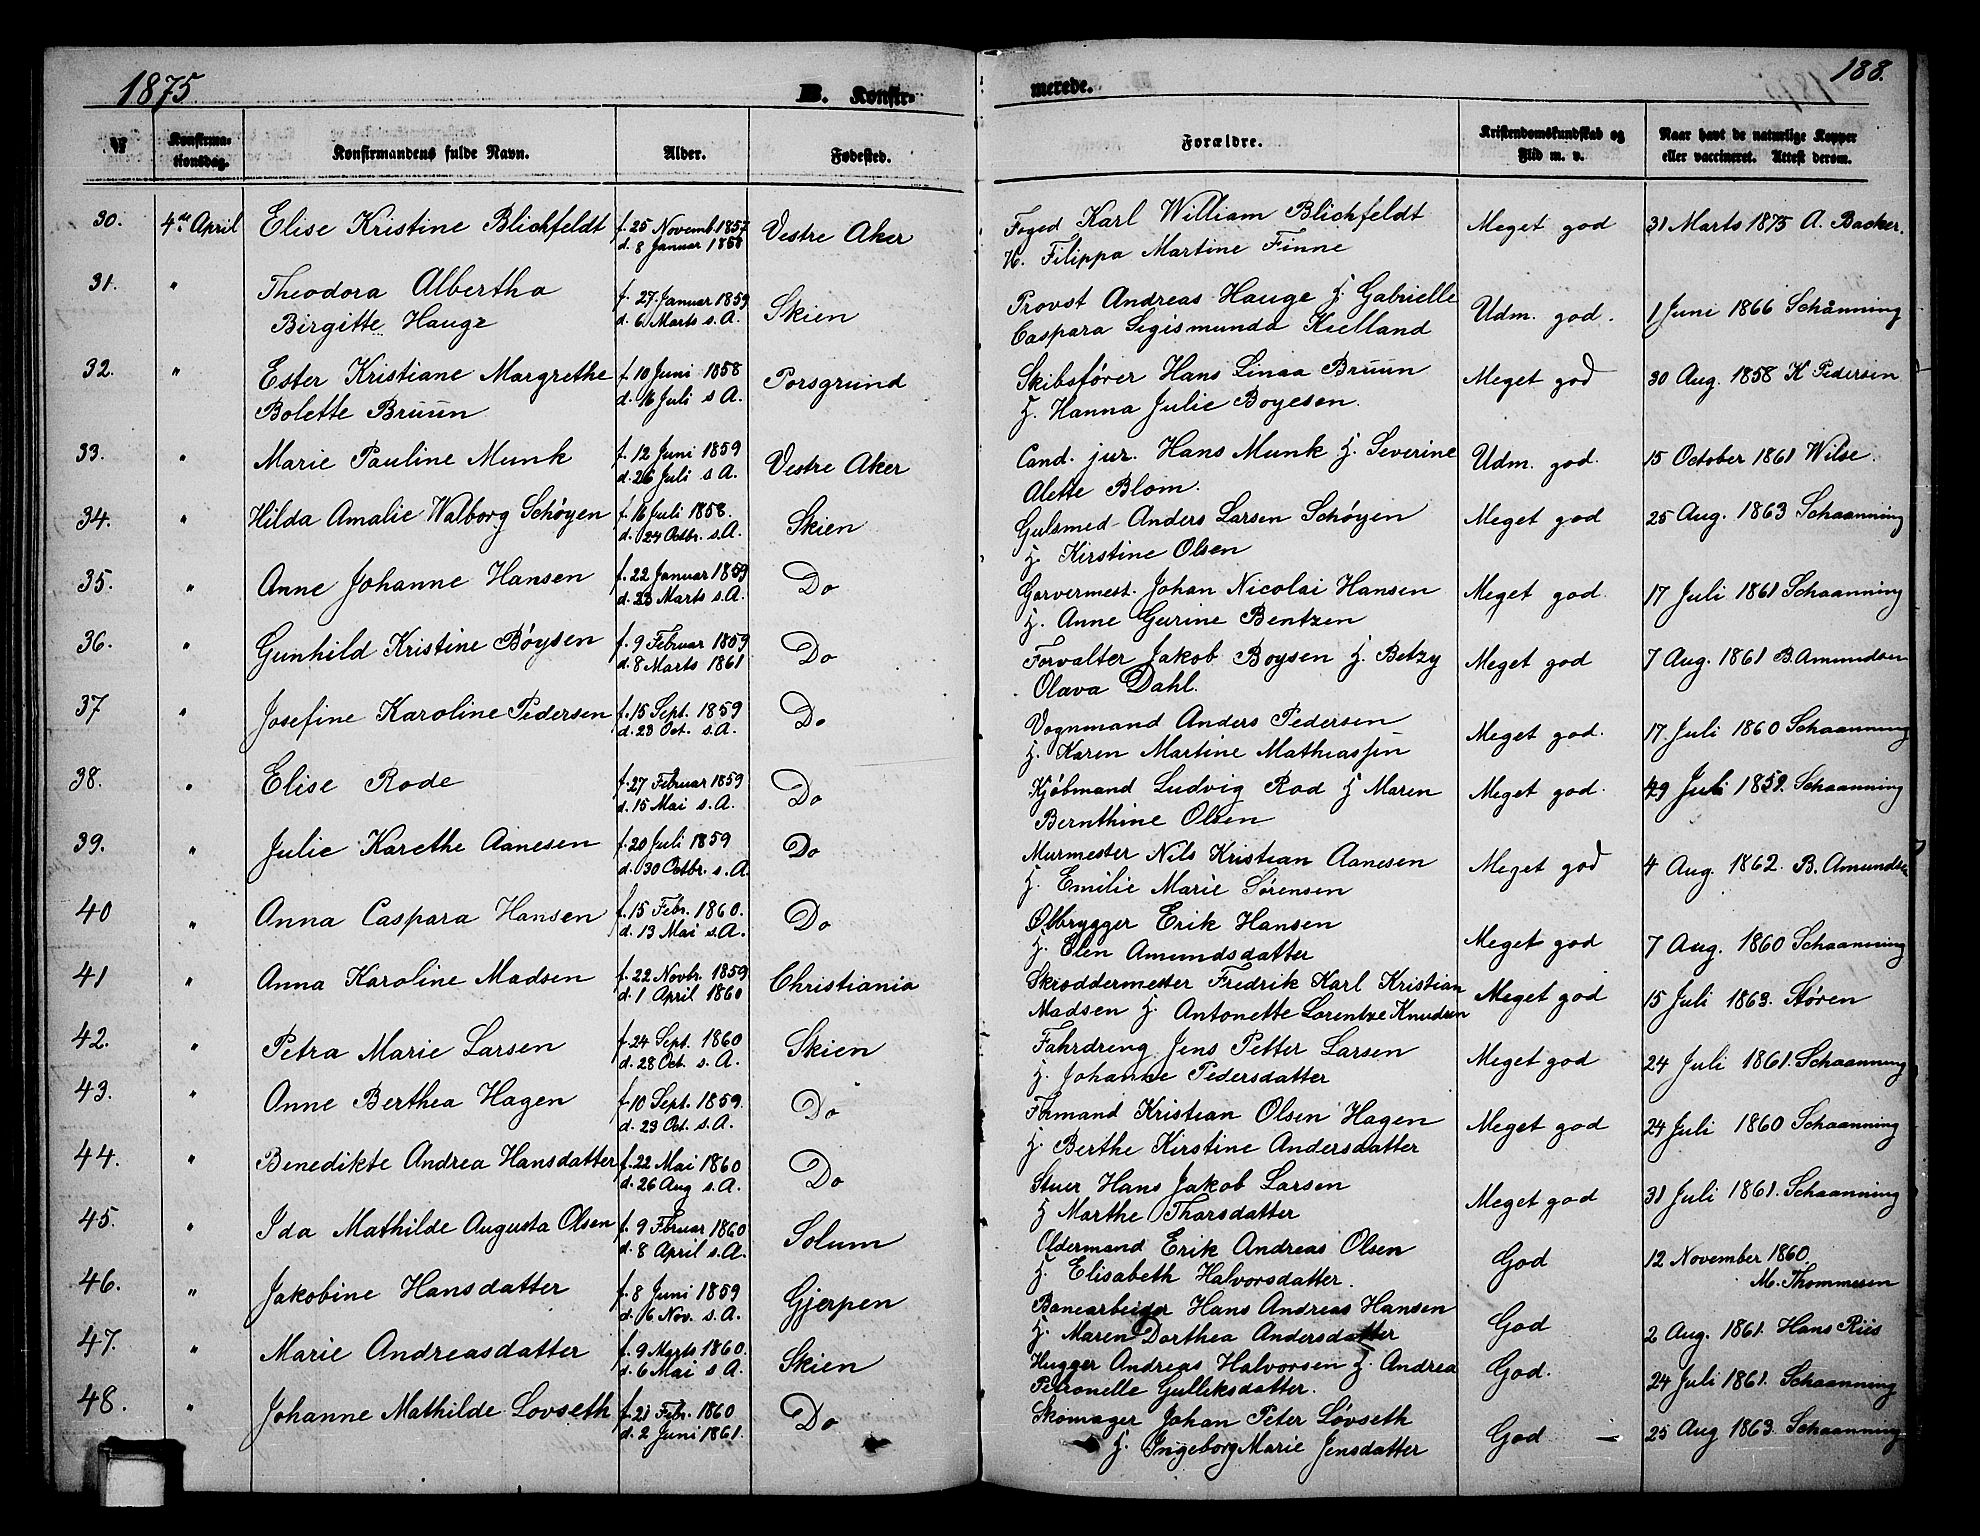 1875
B. Konfir-
merede.
188.
№
Konfirma-
tionsdag.
Konfirmandens fulde Navn.
Alder.
Fødested.
Forældre.
Kristendomskundskab og
Flid m. v.
Naar havt de naturlige Kopper
eller vaccineret. Attest derom.
30. 4de April Elise Kristine Blichfeldt f. 25 Novemb. 1857 Vestre Aker Foged Karl William Blichfeldt Meget god 31 Marts 1875 A. Backer.
d. 8 Januar 1858 H. Filippa Martine Finne
31. " Theodora Albertha f. 27 Januar 1859 Skien Provst Andreas Hauge H. Gabrielle Udm. god. 1 Juni 1866 Schånning
Birgitte Hauge d. 6 Marts s. A. Caspara Sigismunda Kielland
32. " Ester Kristiane Margrethe f. 10 Juni 1858 Porsgrund Skibsfører Hans Linaa Bruun Meget god 30 Aug. 1858 K Pedersen
Bolette Bruun d. 16 Juli s A. H. Hanna Julie Boyesen.
33. " Marie Pauline Munk f. 12 Juni 1859 Vestre Aker Cand. jur. Hans Munk H. Severine Udm. god. 15 October 1861 Wilse.
d. 26 Juli s. A. Alette Blom.
34. " Hilda Amalie Walborg Schøyen f. 16 Juli 1858. Skien Gulsmed Anders Larsen Schøyen Meget god 25 Aug. 1863 Schaanning
d. 24 Octbr. s. A. H. Kirstine Olsen
35. " Anne Johanne Hansen f. 22 Januar 1859 Do Garvermest. Johan Nicolai Hansen Meget god. 17 Juli 1861 Schaanning
d. 23 Marts s. A. H. Anne Gurine Bentzen
36. " Gunhild Kristine Bøysen f. 9 Februar 1859 Do Forvalter Jakob Boysen H. Betzy Meget god 7 Aug. 1861 B. Amundsen
d. 8 Marts 1861 Olava Dahl.
37 " Josefine Karoline Pedersen f. 15 Sept. 1859 Do Vognmand Anders Pedersen Meget god. 17 Juli 1860 Schaanning
d. 23 Oct. s. A. H. Karen Martine Mathiassen
38. " Elise Rode f. 27 Februar 1859 Do Kjøbmand Ludvig Rod H Maren Meget god. Juli 1859. Schaanning
d. 15 Mai s. A. Bernthine Olsen
39. " Julie Karethe Aanesen f. 20 Juli 1859 Do Murmester Nils Kristian Aanesen Meget god 4 Aug. 1862. B. Amundsen
d. 30 Octbr. s. A. H. Emilie Marie Sørensen
40 " Anna Caspara Hansen f. 15 Febr. 1860. Do Ølbrygger Erik Hansen Meget god 7 Aug. 1860 Schaanning
d. 13 Mai s. A. H. Elen Amundsdatter
41 " Anna Karoline Madsen f. 22 Novbr. 1859 Christiania Skræddermester Fredrik Karl Kristian Meget god 15 Juli 1863. Støren
d. 1 April 1860 Madsen H. Antonette Lorentze Knudsen
42. " Petra Marie Larsen f. 24 Sept. 1860 Skien Fahrdreng Jens Petter Larsen Meget god 24 Juli 1861. Schaanning
d. 28 Oct. s. A. H. Johanne Pedersdatter
43. " Anne Berthea Hagen f. 10 Sept. 1859. Do Formand Kristian Olsen Hagen Meget god 24 Juli 1860 Schaanning
d. 23 Oct. s. A. H. Berthe Kirstine Andersdatter
44. " Benedikte Andrea Hansdatter f. 22 Mai 1860 Do Stuer Hans Jakob Larsen Meget god 31 Juli 1861. Schaanning
d. 26 Aug s. A. H Marthe Tharsdatter
45. " Ida Mathilde Augusta Olsen f. 9 Februar 1860 Solum Oldermand Erik Andreas Olsen God 12 November 1860.
d. 8 April s. A. H. Elisabeth Halvorsdatter. M. Thommesen
46. " Jakobine Hansdatter f. 8 Juni 1859 Gjerpen Banearbeider Hans Andreas Hansen God 2 Aug. 1861. Hans Riis
d. 6 Nov. s. A. H. Maren Dorthea Andersdatter
47. " Marie Andreasdatter f. 9 Marts 1860. Skien Hugger Andreas Halvorsen H. Andrea God. 24 Juli 1861. Schaanning
d. 6 Mai s. A. Petronelle Gulliksdatter.
48. " Johanne Mathilde Lovseth f. 21 Febr. 1860 Do Skomager Johan Peter Løvseth God — 25 Aug 1863. Schaanning
d. 2 Juni 1861. H. Ingeborg Marie Jensdatter